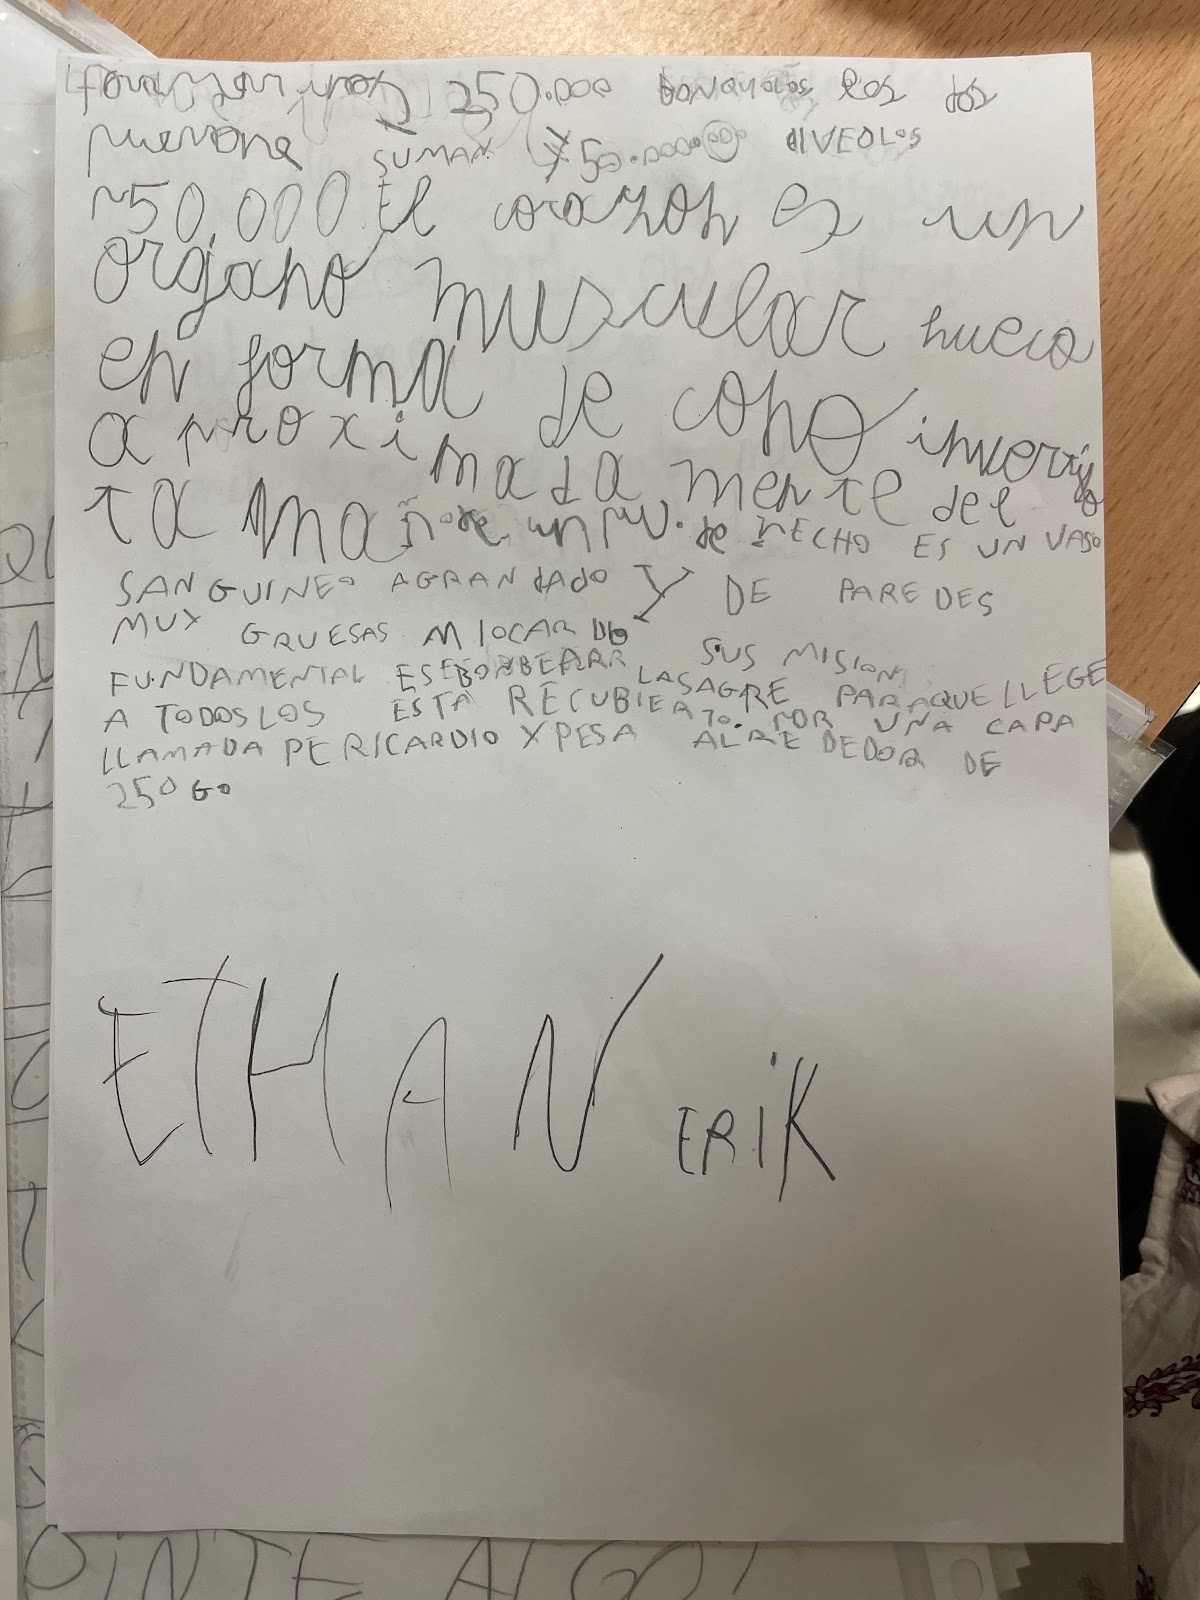 unos 250.000 bonquiolos los dos
pumone SUMAN 750.000.000 alVEOLOS
~50,000 El corazon es un
organo muscular hueco
en forma de cono invertijo
a proximada mente del
ta maño de un pu. de HECHO ES UN VASO
SANGUINEO AGRANdAdO Y DE PAREDES
MUY GRUESAS MIOCARDO
FUNDAMENTAL ES BOMBEAR SUS MISION
LASAGRE PARAQUE LLEGE
A TODOSLOS ESTA RECUBIERTO. POR UNA CAPA
LLAMADA PERICARDIO Y PESA ALREDEDOR DE
250 Go
ETHAN ERiK
PINTE ALGO